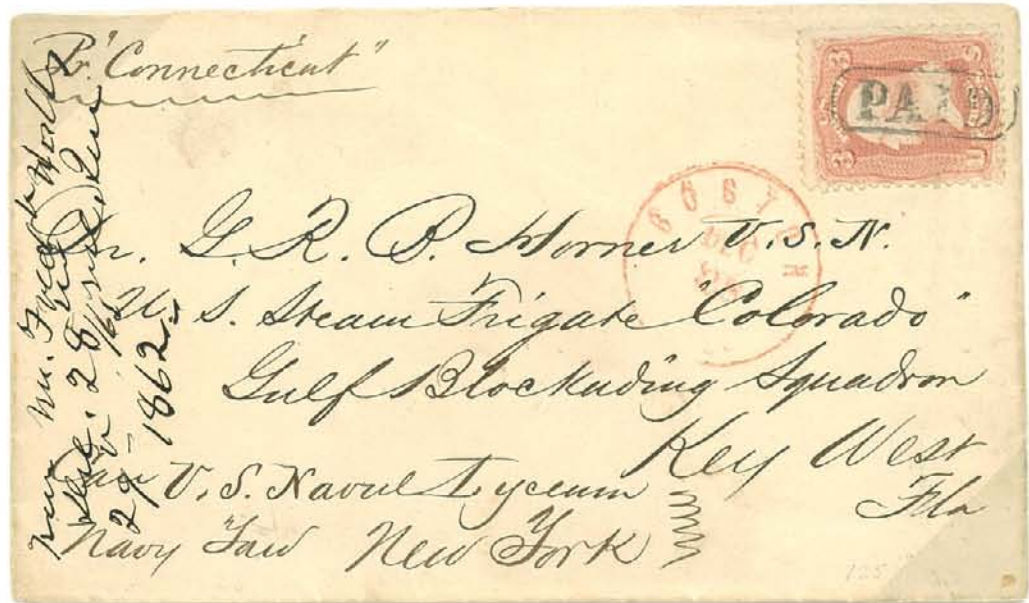 Pr. "Connecticut"
3 U S 3
PAID
BOSTON
DEC
Dr. G. R. B. Horner U.S.N.
U. S. Steam Frigate "Colorado"
Gulf Blockading Squadron
Key West
Fla
U. S. Naval Lyceum
Navy Yard New York
Mr.
28
29
1862
125